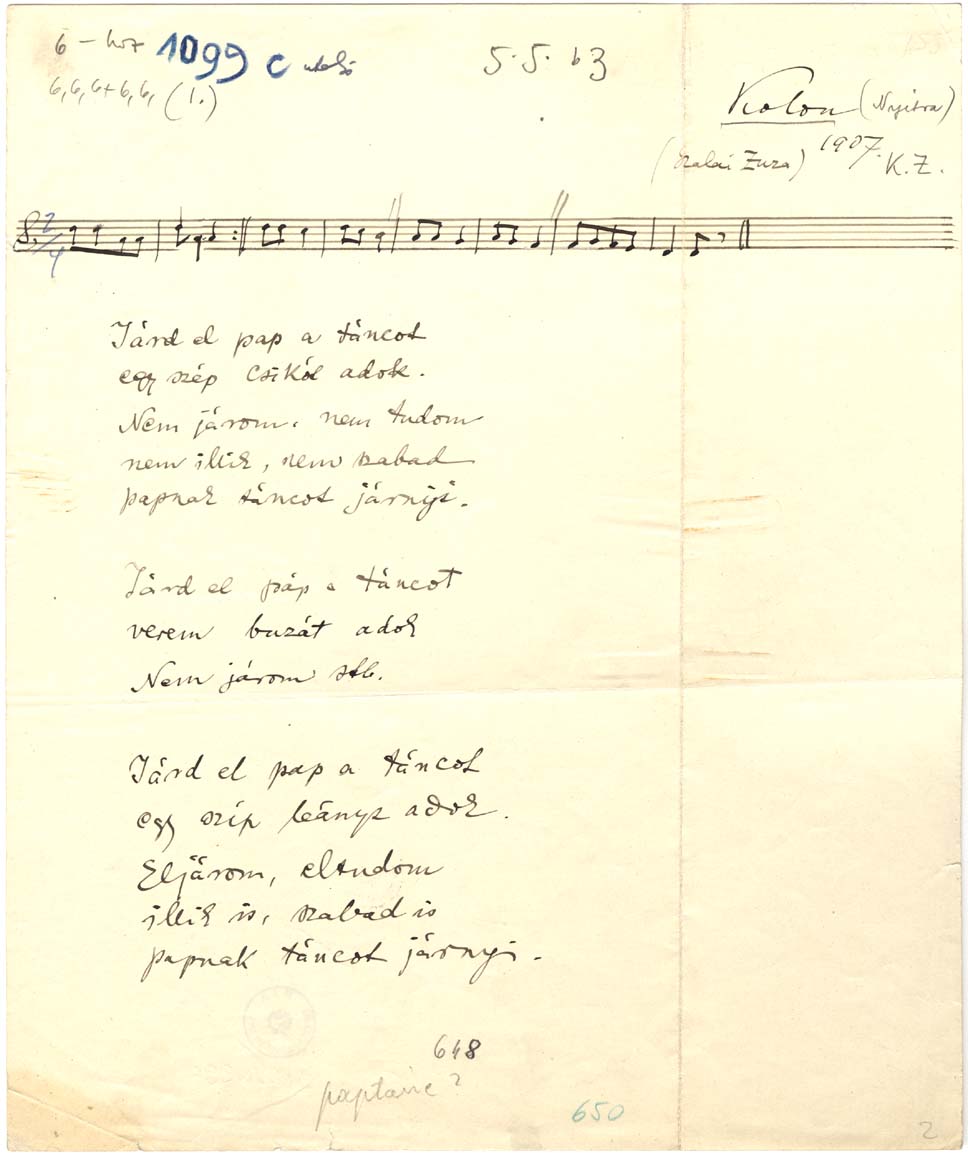 6 – hoz 1099 c utolsó 5. 5. b3
6,6,6+6,6, (1.)
Kolon (Nyitra)
(Szalai Zuza) 1907. K.Z.
2/4
Járd el pap a táncot
egy szép csikót adok.
Nem járom, nem tudom
nem illik, nem szabad
papnak táncot járnyi.
Járd el páp a táncot
verem buzát adok
Nem járom stb.
Járd el pap a táncot
egy szép leányt adok.
Eljárom, eltudom
illik is, szabad is
papnak táncot járnyi.
648
paptánc?
650
2